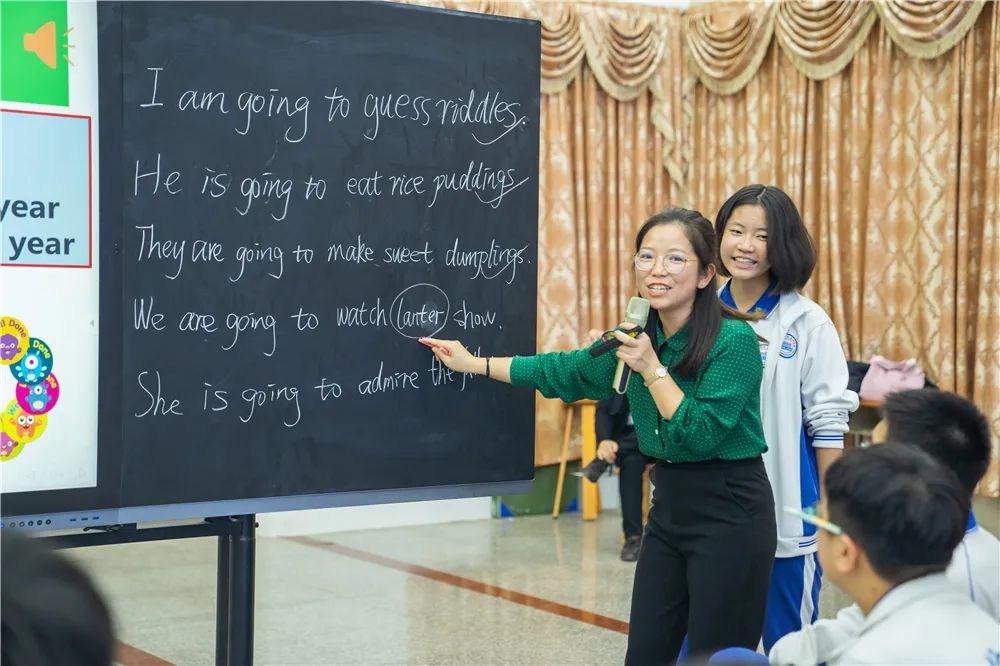 year
year
Done
Done
I am going to guess riddles.
He is going to eat rice puddings
They are going to make sweet dumplings.
We are going to watch lanter show.
She is going to admire the